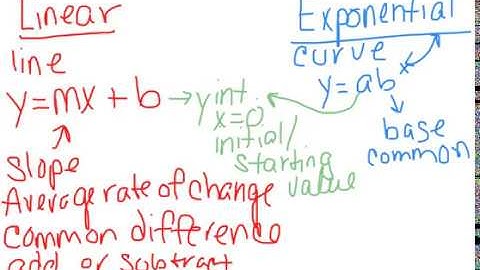 Linear
line
y=mx+b
slope
Average rate of change
common difference
add or subtract
y int
x=0
initial/
starting
value
Exponential
curve
y=abˣ
base
common